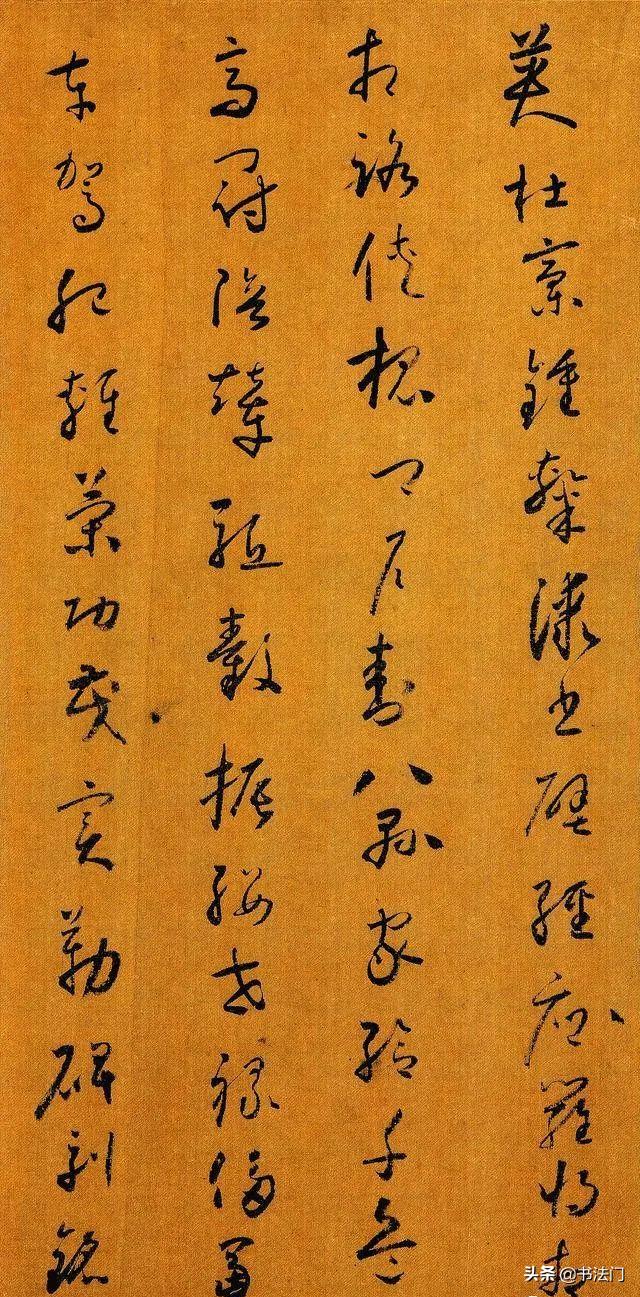 英杜稾鍾隸漆書壁經府羅将相
相路俠槐卿户封八縣家給千兵
高冠陪輦驅轂振纓世禄侈富
車駕肥輕策功茂實勒碑刻銘
头条 @书法门